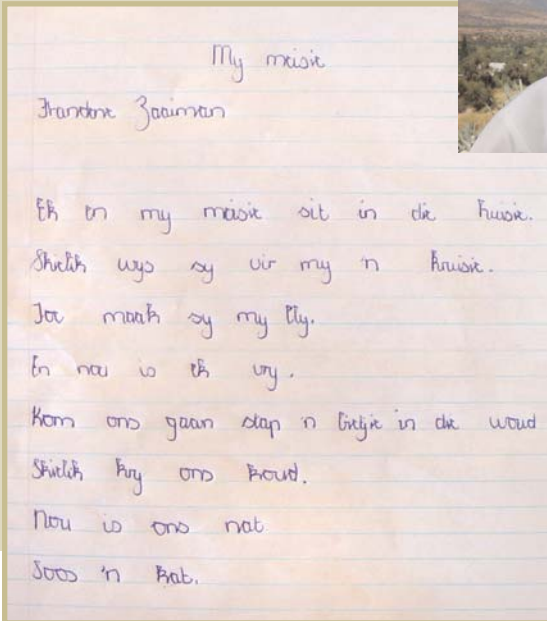 My meisie
Zaaiman
Ek en my meisie sit in die huisie.
Skielik wys sy vir my 'n kruisie.
Joe maak sy my bly.
En nou is ek vry.
Kom ons gaan stap 'n bietjie in die woud
Skielik kry ons koud.
Nou is ons nat
Soos 'n kat.